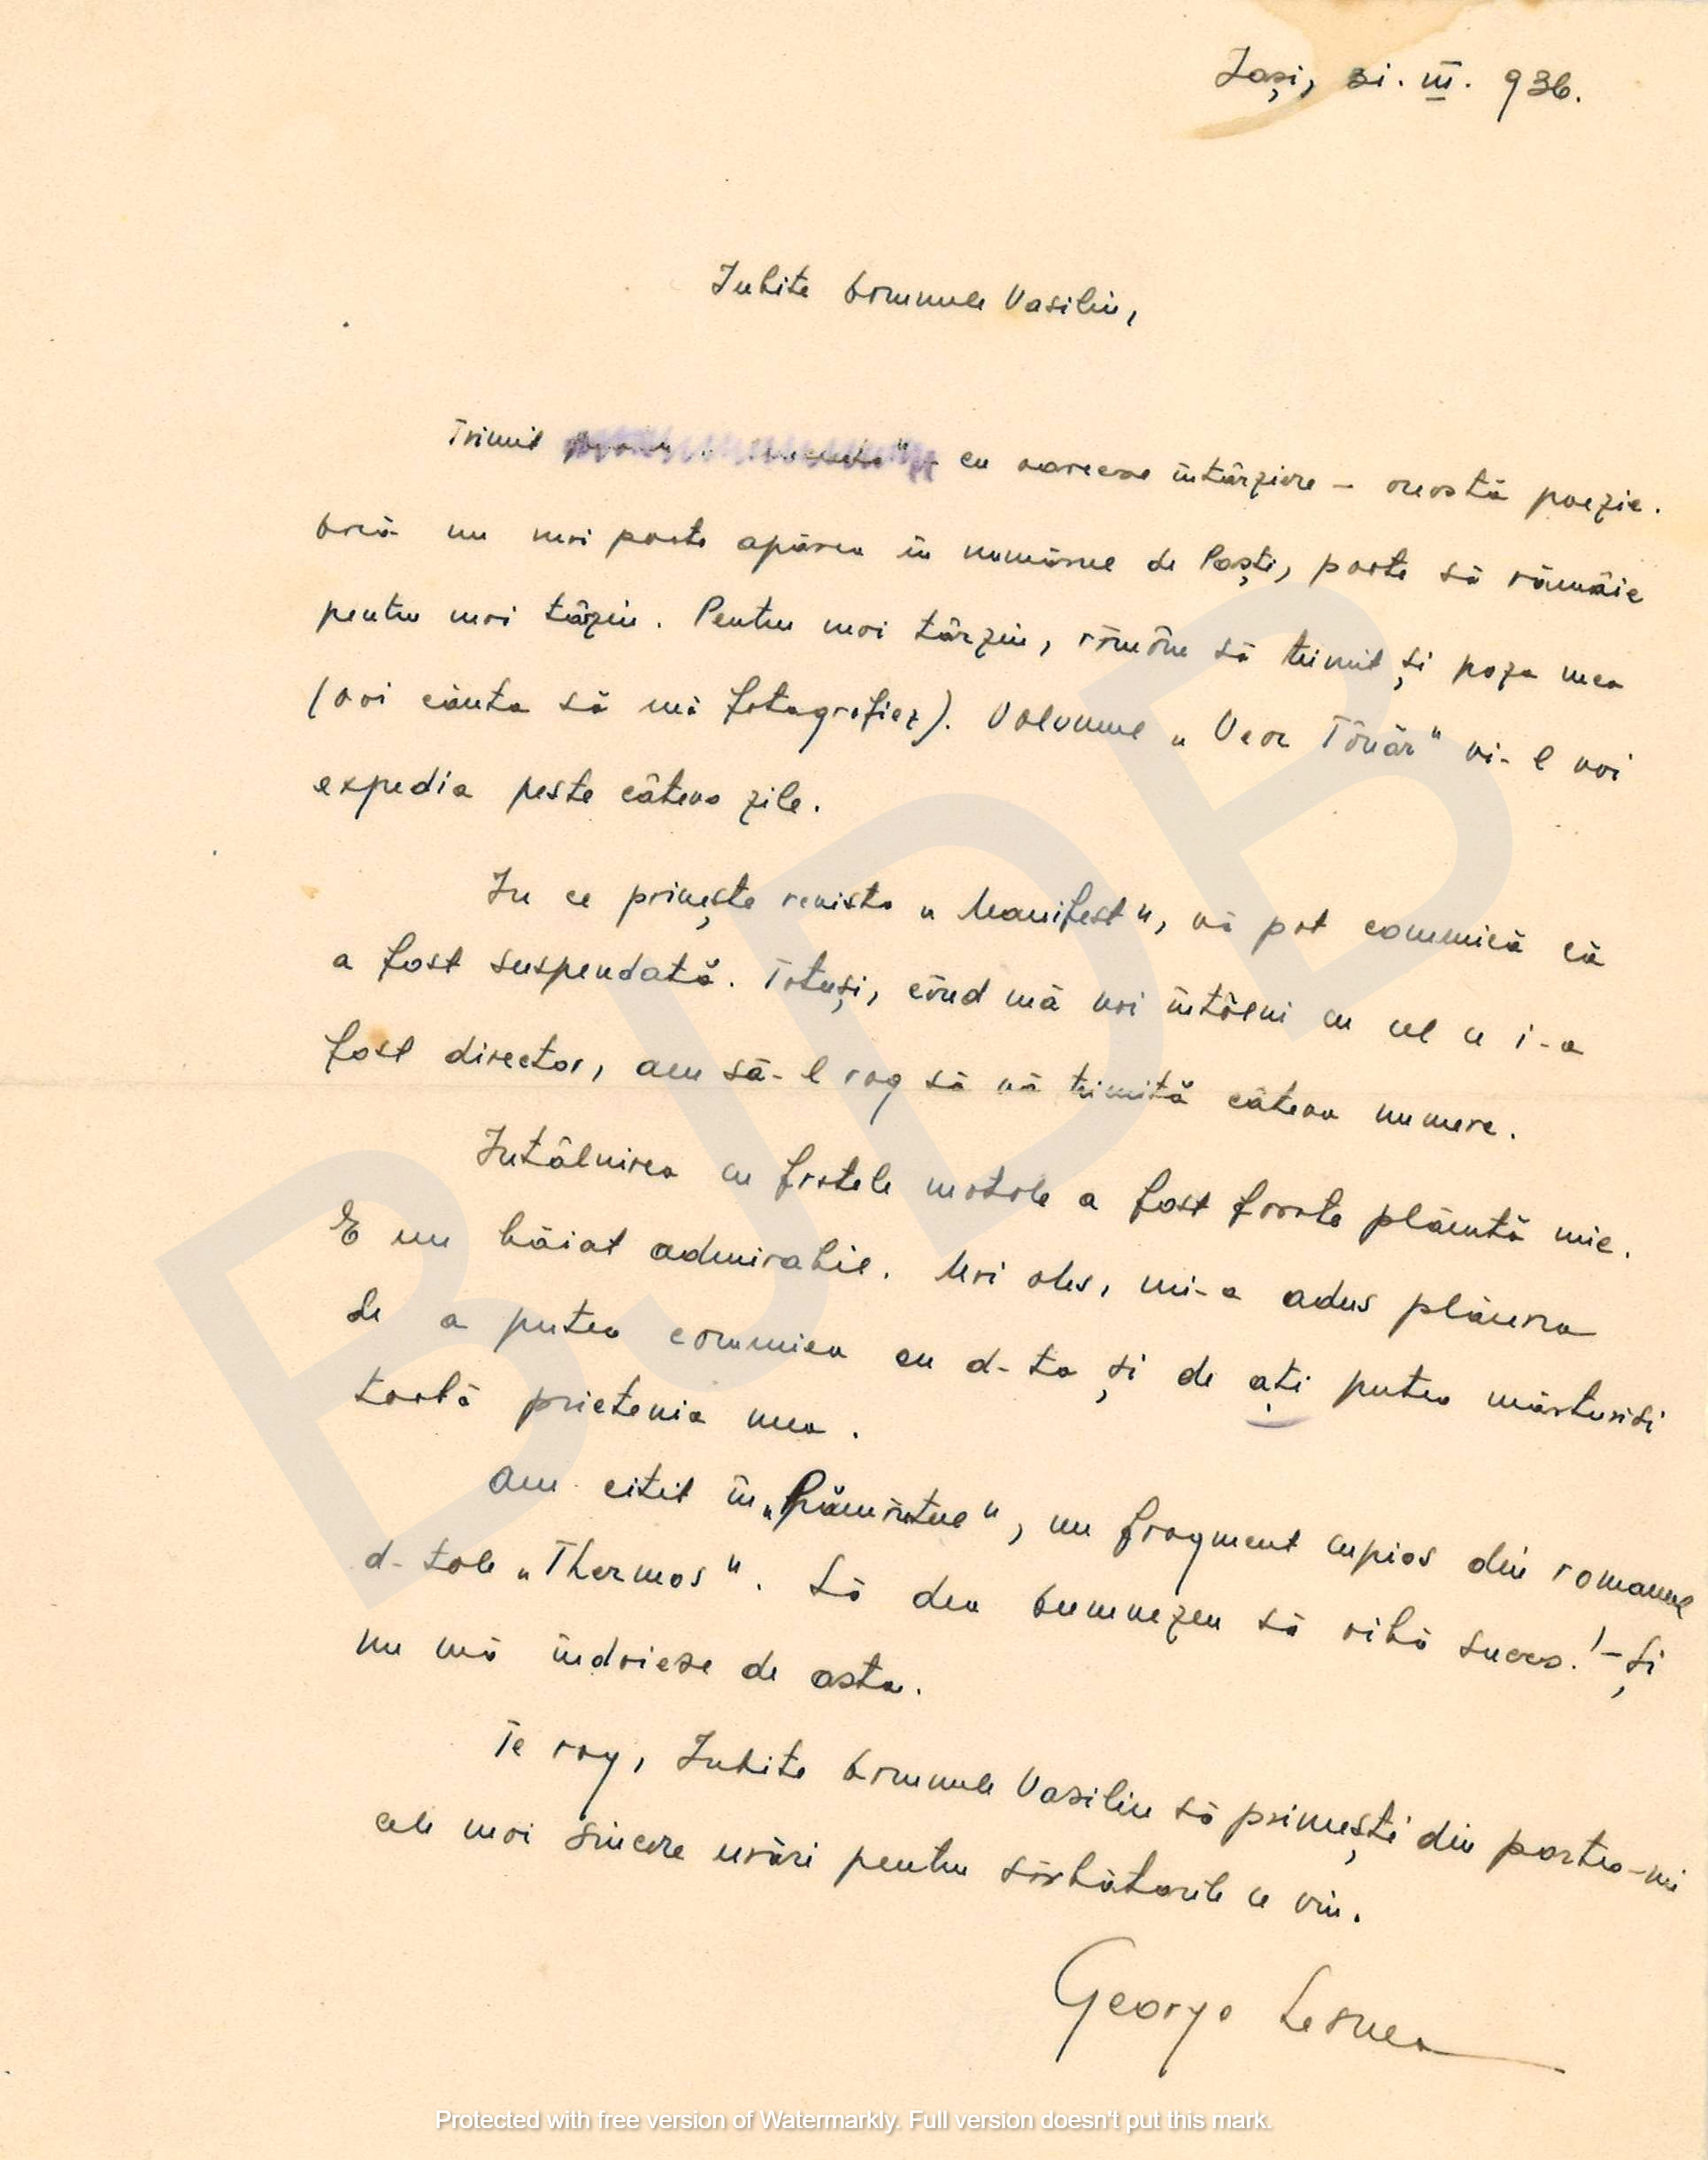 Iași, 31. III. 936.
Iubite Domnule Vasiliu,
Trimit cu oarecare întârziere – această poezie.
Dacă nu mai poate apărea în numărul de Paști, poate să rămâie
pentru mai târziu. Pentru mai târziu, rămâne să trimit și poza mea
(voi căuta să mă fotografiez). Volumul „Veac Tânăr" vi-l voi
expedia peste câteva zile.
In ce privește revista „Manifest", vă pot comunică că
a fost suspendată. Totuși, când mă voi întâlni cu cel ce i-a
fost director, am să-l rog să vă trimită câteva numere.
Intâlnirea cu fratele matale a fost foarte plăcută mie.
E un băiat admirabil. Mai ales, mi-a adus plăcerea
de a putea comunica cu d-ta și de ați putea mărturisi
toată prietenia mea.
Am citit în „Pământul", un fragment copios din romanul
d-tale „Thermos". Să dea Dumnezeu să aibă succes! – Și
nu mă îndoiesc de asta.
Te rog, Iubite Domnule Vasiliu să primești din partea-mi
cele mai sincere urări pentru sărbătorile ce vin.
George Lesnea
BJDB
Protected with free version of Watermarkly. Full version doesn't put this mark.